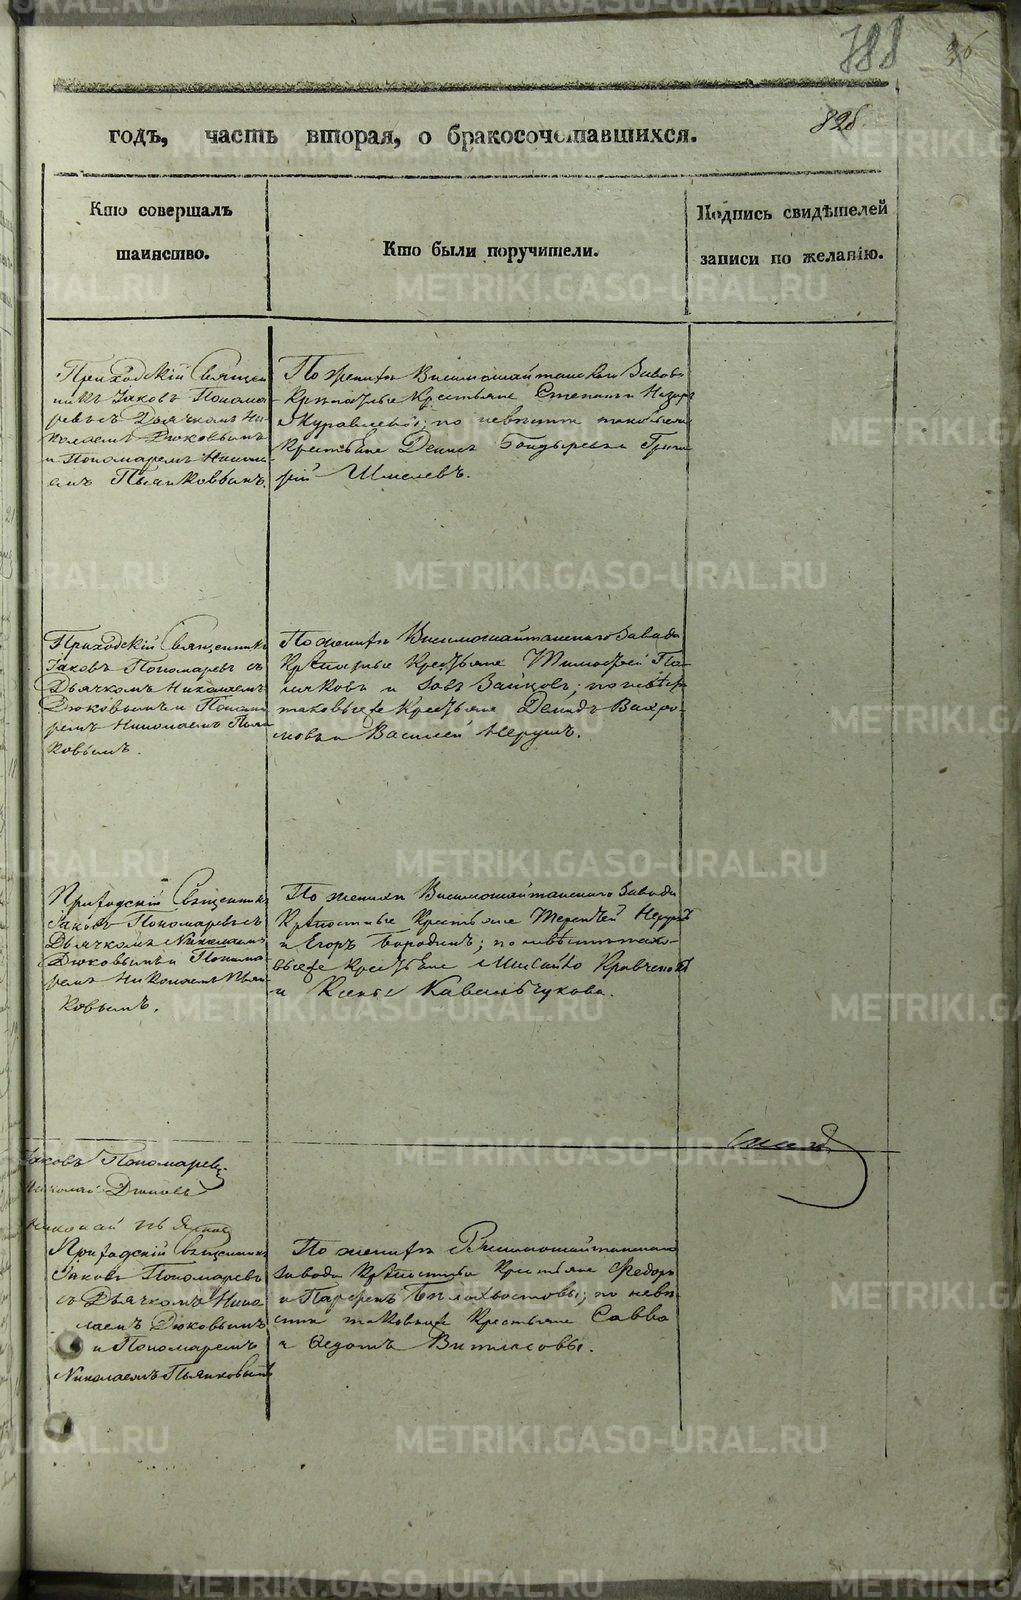 788
826
годъ, часть вторая, о бракосочетавшихся.
Кто совершалъ
таинство.
Кто были поручители.
Подпись свидѣтелей
записи по желанію.
Приходскій Священ
никъ Іаковъ Понома
ревъ съ Дьячкомъ Ни
колаемъ Дюковымъ
и Пономаремъ Никола
емъ Пьянковымъ.
По женихѣ Висимошайтанскаго Завода
Крѣпостные Крестьяне Степанъ и Назаръ
Журавлевы; по невѣстѣ таковые же
Крестьяне Денисъ Бондырев и Григо
рій Шмелевъ.
Приходскій Священникъ
Іаковъ Пономаревъ съ
Дьячкомъ Николаемъ
Дюковымъ и Понома
ремъ Николаемъ Пьян
ковымъ.
По женихѣ Висимошайтанскаго Завода
Крѣпостные Крестьяне Тимофей По
лячковъ и Іовъ Зайцовъ; по невѣстѣ
таковые же Крестьяне Демидъ Вахро
мовъ и Василей Нерушъ.
Приходскій Священникъ
Іаковъ Пономаревъ съ
Дьячкомъ Николаемъ
Дюковымъ и Понома
ремъ Николаемъ Пьян
ковымъ.
По женихѣ Висимошайтанскаго Завода
Крѣпостные Крестьяне Терентей Нерушъ
и Егоръ Бородинъ; по невѣстѣ тако
вые же Крестьяне Михайло Кравченко
и
Іаковъ Пономаревъ
Николай Дюковъ
Николай Пьянков
Приходскій Священникъ
Іаковъ Пономаревъ
съ Дьячкомъ Нико
лаемъ Дюковымъ
и Пономаремъ
Николаемъ Пьянковымъ
По женихѣ Висимошайтанскаго
Завода Крѣпостные Крестьяне Федоръ
и Парфенъ Бѣлохвостовы; по невѣ
стѣ таковые же Крестьяне Савва
и Федотъ
METRIKI.GASO-URAL.RU